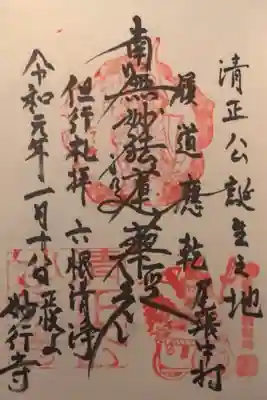 清正公誕生之地
履道應乾
尾張中村
南無妙法蓮華経
但行礼拝 六根清浄
令和元年一月十八日 正悦山
妙行寺